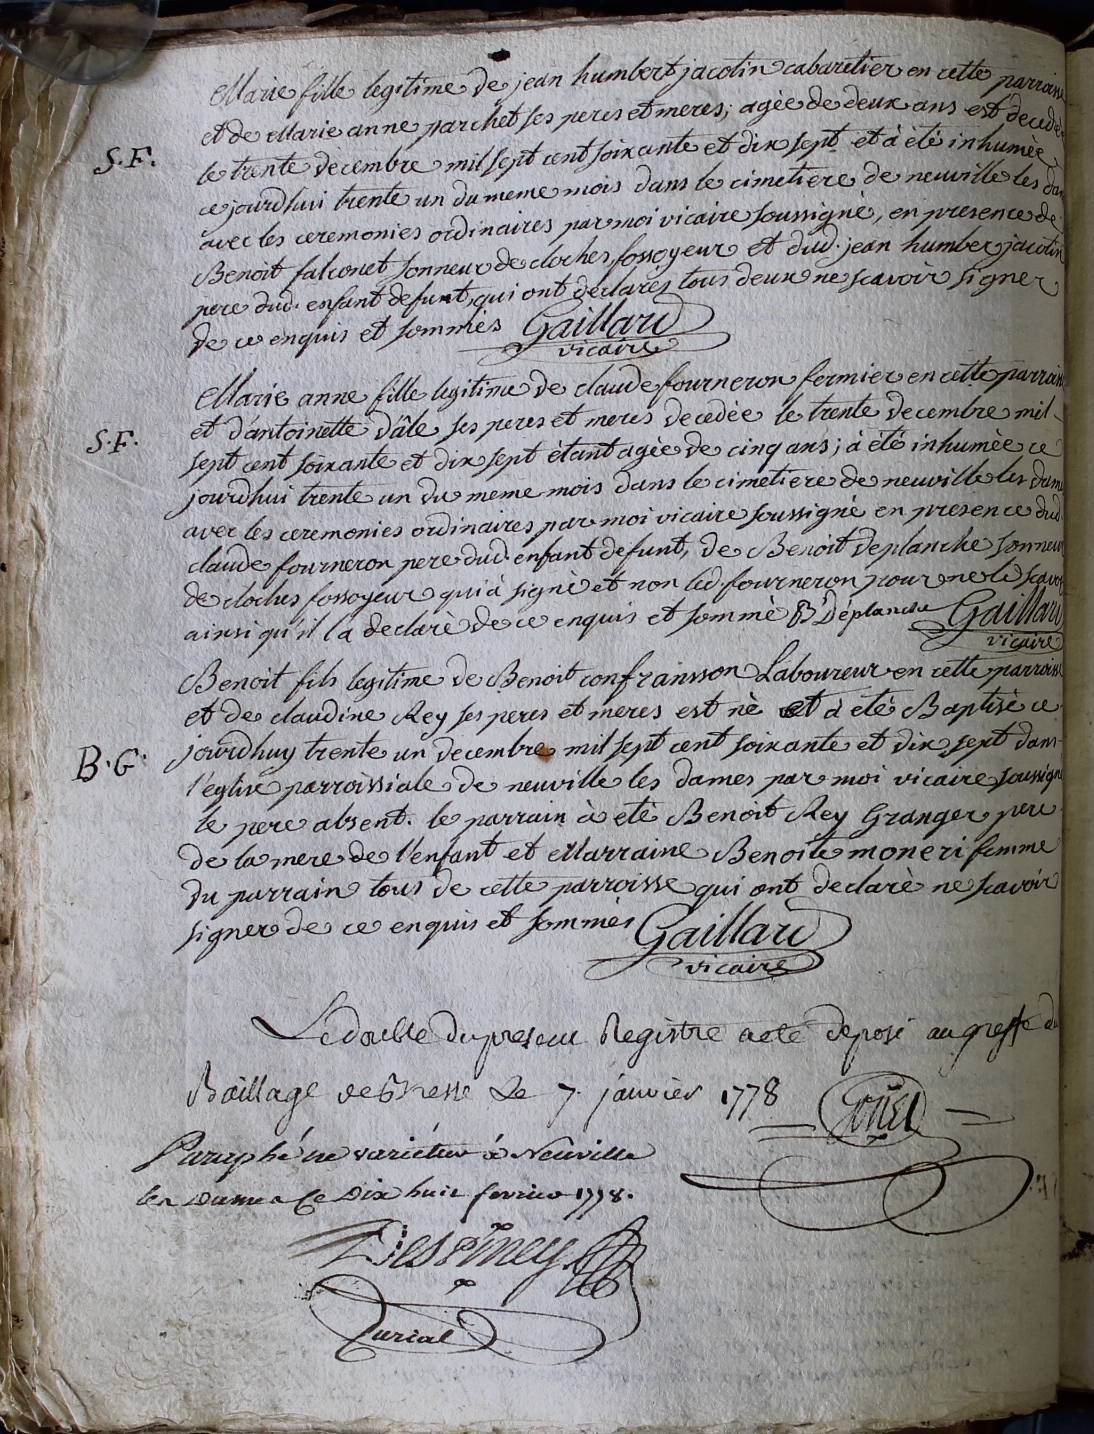 Marie fille legitime de jean humbert jacotin cabaretier en cette parroisse
et de Marie anne parchet ses peres et meres, agèe de deux ans est decedèe
S.F. le trente decembre mil sept cent soixante et dix sept et à étè inhumèe
ce jourdhui trente un du meme mois dans le cimetiere de neuville les dam
avec les ceremonies ordinaires par moi vicaire soussignè, en presence de
Benoit falconet sonneur de cloches fossoyeur et dud. jean humber jacotin
pere dud. enfant defunt, qui ont declarès tous deux ne scavoir signer
de ce enquis et sommès Gaillard
vicaire
Marie anne fille legitime de claude fourneron fermier en cette parroiss
et d'antoinette dâle ses peres et meres decedèe le trente decembre mil
S.F. sept cent soixante et dix sept étant agèe de cinq ans; à étè inhumèe ce
jourdhui trente un du meme mois dans le cimetiere de neuville les dame
avec les ceremonies ordinaires par moi vicaire soussignè en presence dud
claude fourneron pere dud. enfant defunt, de Benoit deplanche sonneur
de cloches fossoyeur qui à signè et non led. fourneron pour ne le scavoi
ainsi qu'il la declarè de ce enquis et sommè B Déplanche Gaillard
vicaire
Benoit fils legitime de Benoit confransson Laboureur en cette parroisse
et de claudine Rey ses peres et meres est nè et à étè Baptisè ce
B.G. jourdhuy trente un decembre mil sept cent soixante et dix sept dans
l'église parroissiale de neuville les dames par moi vicaire soussignè
le pere absent. le parrain à étè Benoit Rey Granger pere
de la mere de l'enfant et Marraine Benoite moneri femme
du parrain tous de cette parroisse qui ont declarè ne scavoir
signer de ce enquis et sommès Gaillard
vicaire
Le double du present Registre a eté deposé au greffe du
Baillage de Bresse Le 7. janvier 1778
Paraphé ne varietur à Neuville
les Dames ce Dix huit fevrier 1778.
Desriney
Durial